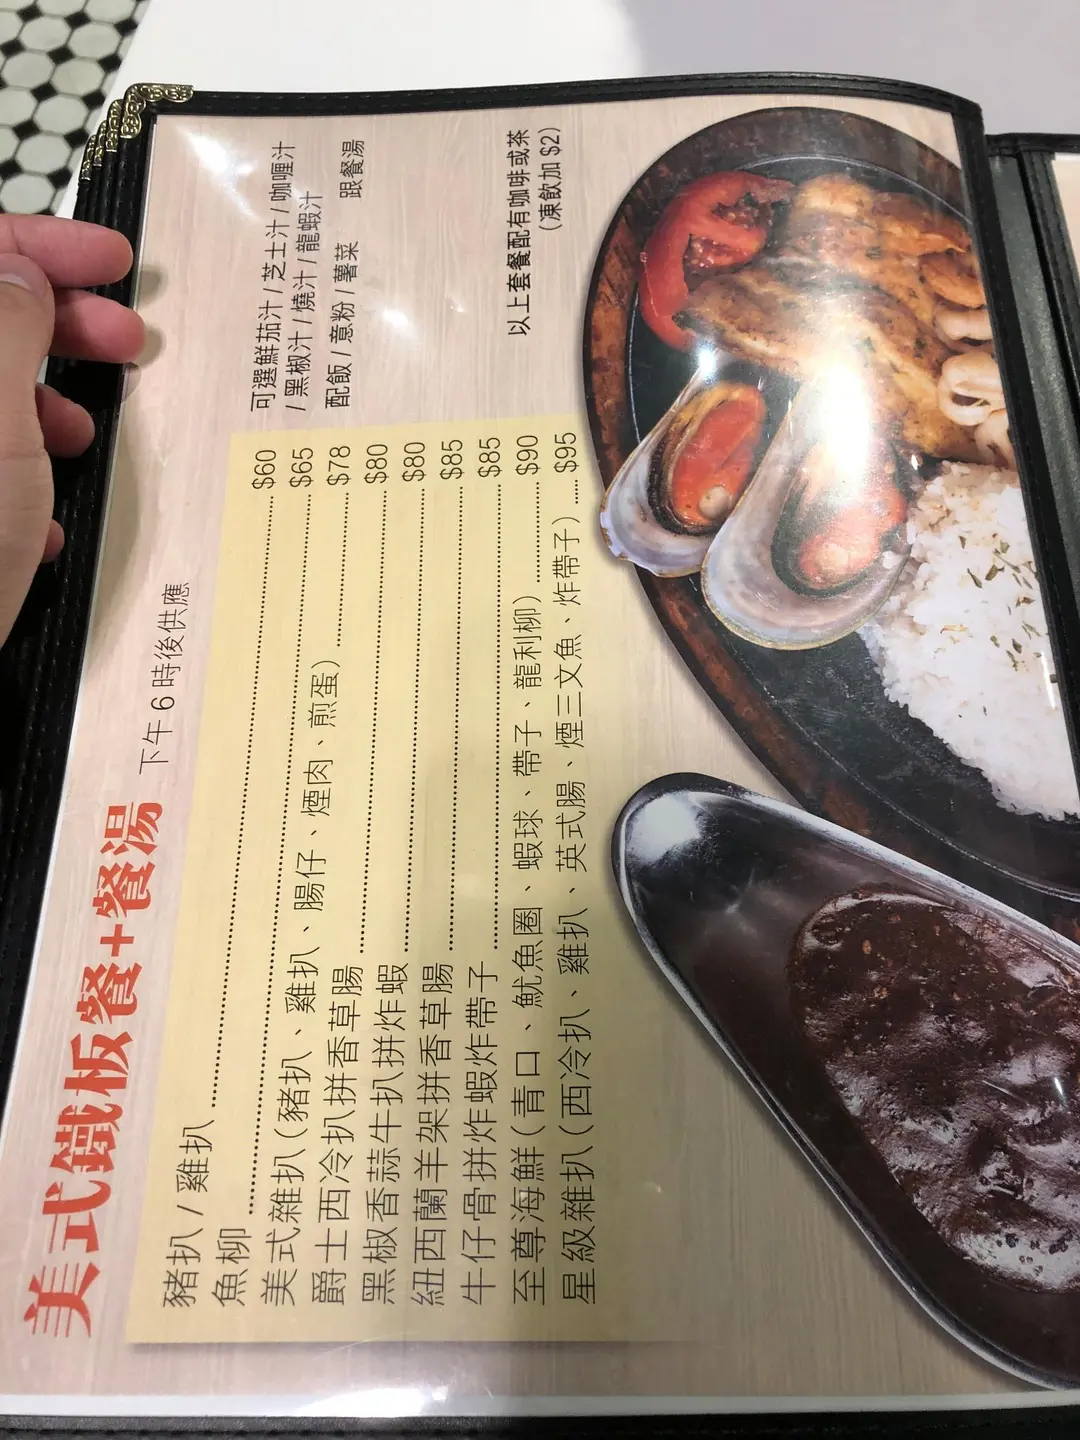 美式鐵板餐+餐湯 下午6時後供應
豬扒 / 雞扒 $60
魚柳 $65
美式雜扒（豬扒、雞扒、腸仔、煙肉、煎蛋） $78
爵士西冷扒拼香草腸 $80
黑椒香蒜牛扒拼炸蝦 $80
紐西蘭羊架拼香草腸 $85
牛仔骨拼炸蝦炸帶子 $85
至尊海鮮（青口、魷魚圈、蝦球、帶子、龍利柳） $90
星級雜扒（西冷扒、雞扒、英式腸、煙三文魚、炸帶子） $95
可選鮮茄汁 / 芝士汁 / 咖喱汁
/ 黑椒汁 / 燒汁 / 龍蝦汁
配飯 / 意粉 / 薯菜 跟餐湯
以上套餐配有咖啡或茶
（凍飲加 $2）